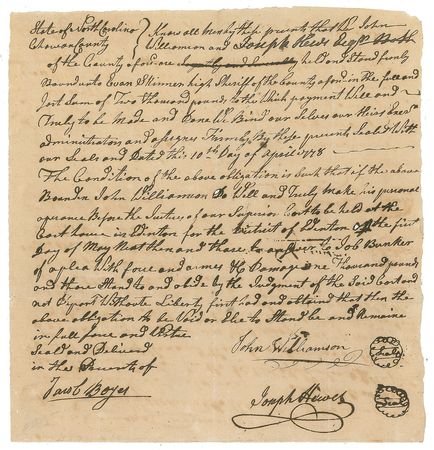 State of North Carolina
Chowan County
Know all men by these presents that we John
Williamson and Joseph Hewes Esqrs Both
of the County aforsd are held and stand firmly
bound unto Evan Skinner high Sheriff of the County aforsd in the full and
Just Sum of Two thousand pounds to the Which payment Will and
Truly to be Made and Done We Bind our Selves our Heirs Exers
administrators and assignes Firmely By these presents Sealed With
our Seals and Dated this 10th Day of April 1778
The Condition of the above obligation is Such that if the above
Bounden John Williamson Do Well and Truly Make his personal
apearance Before the Justices of our Superior Cort to be held at the
Cort house in Edenton for the District of Edenton on the first
Day of May Next then and there to answer to Job Bunker
of a plea With force and armes &c Damage one Thousand pounds
and there Stand to and abide by the Judgment of the Said Cort and
not Depart Without Liberty first had and obtaind that then the
above obligation to be Void or Else to Stand be and Remaine
in full force and Virtue
Seald and Deliverd
in the Presents of
Jacob Boyes
John Williamson
Seal
Joseph Hewes
Seal